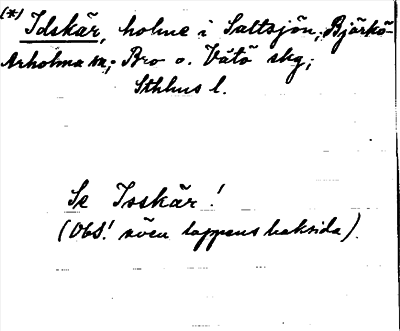 (*) Idskär, holme i Saltsjön; Björkö-
Arholma sn; Bro o. Vätö skg;
Sthlms l.
Se Isskär!
(Obs! även lappens baksida).